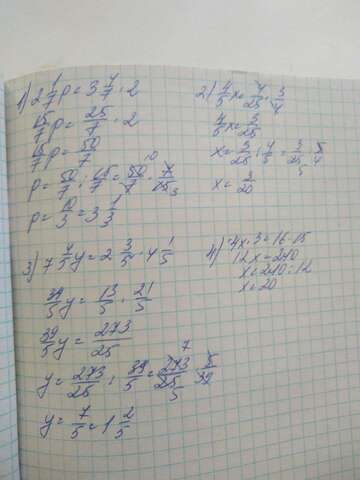 1) 2 1/7 p = 3 4/7 · 2
15/7 p = 25/7 · 2
15/7 p = 50/7
p = 50/7 : 15/7 = 50/7 · 7/15 10 3
p = 10/3 = 3 1/3
2) 4/5 x = 4/25 · 3/4
4/5 x = 3/25
x = 3/25 : 4/5 = 3/25 · 5/4 5
x = 3/20
3) 7 4/5 y = 2 3/5 · 4 1/5
39/5 y = 13/5 · 21/5
39/5 y = 273/25
y = 273/25 : 39/5 = 273/25 · 5/39 7 5
y = 7/5 = 1 2/5
4) 4x · 3 = 16 · 15
12x = 240
x = 240 : 12
x = 20